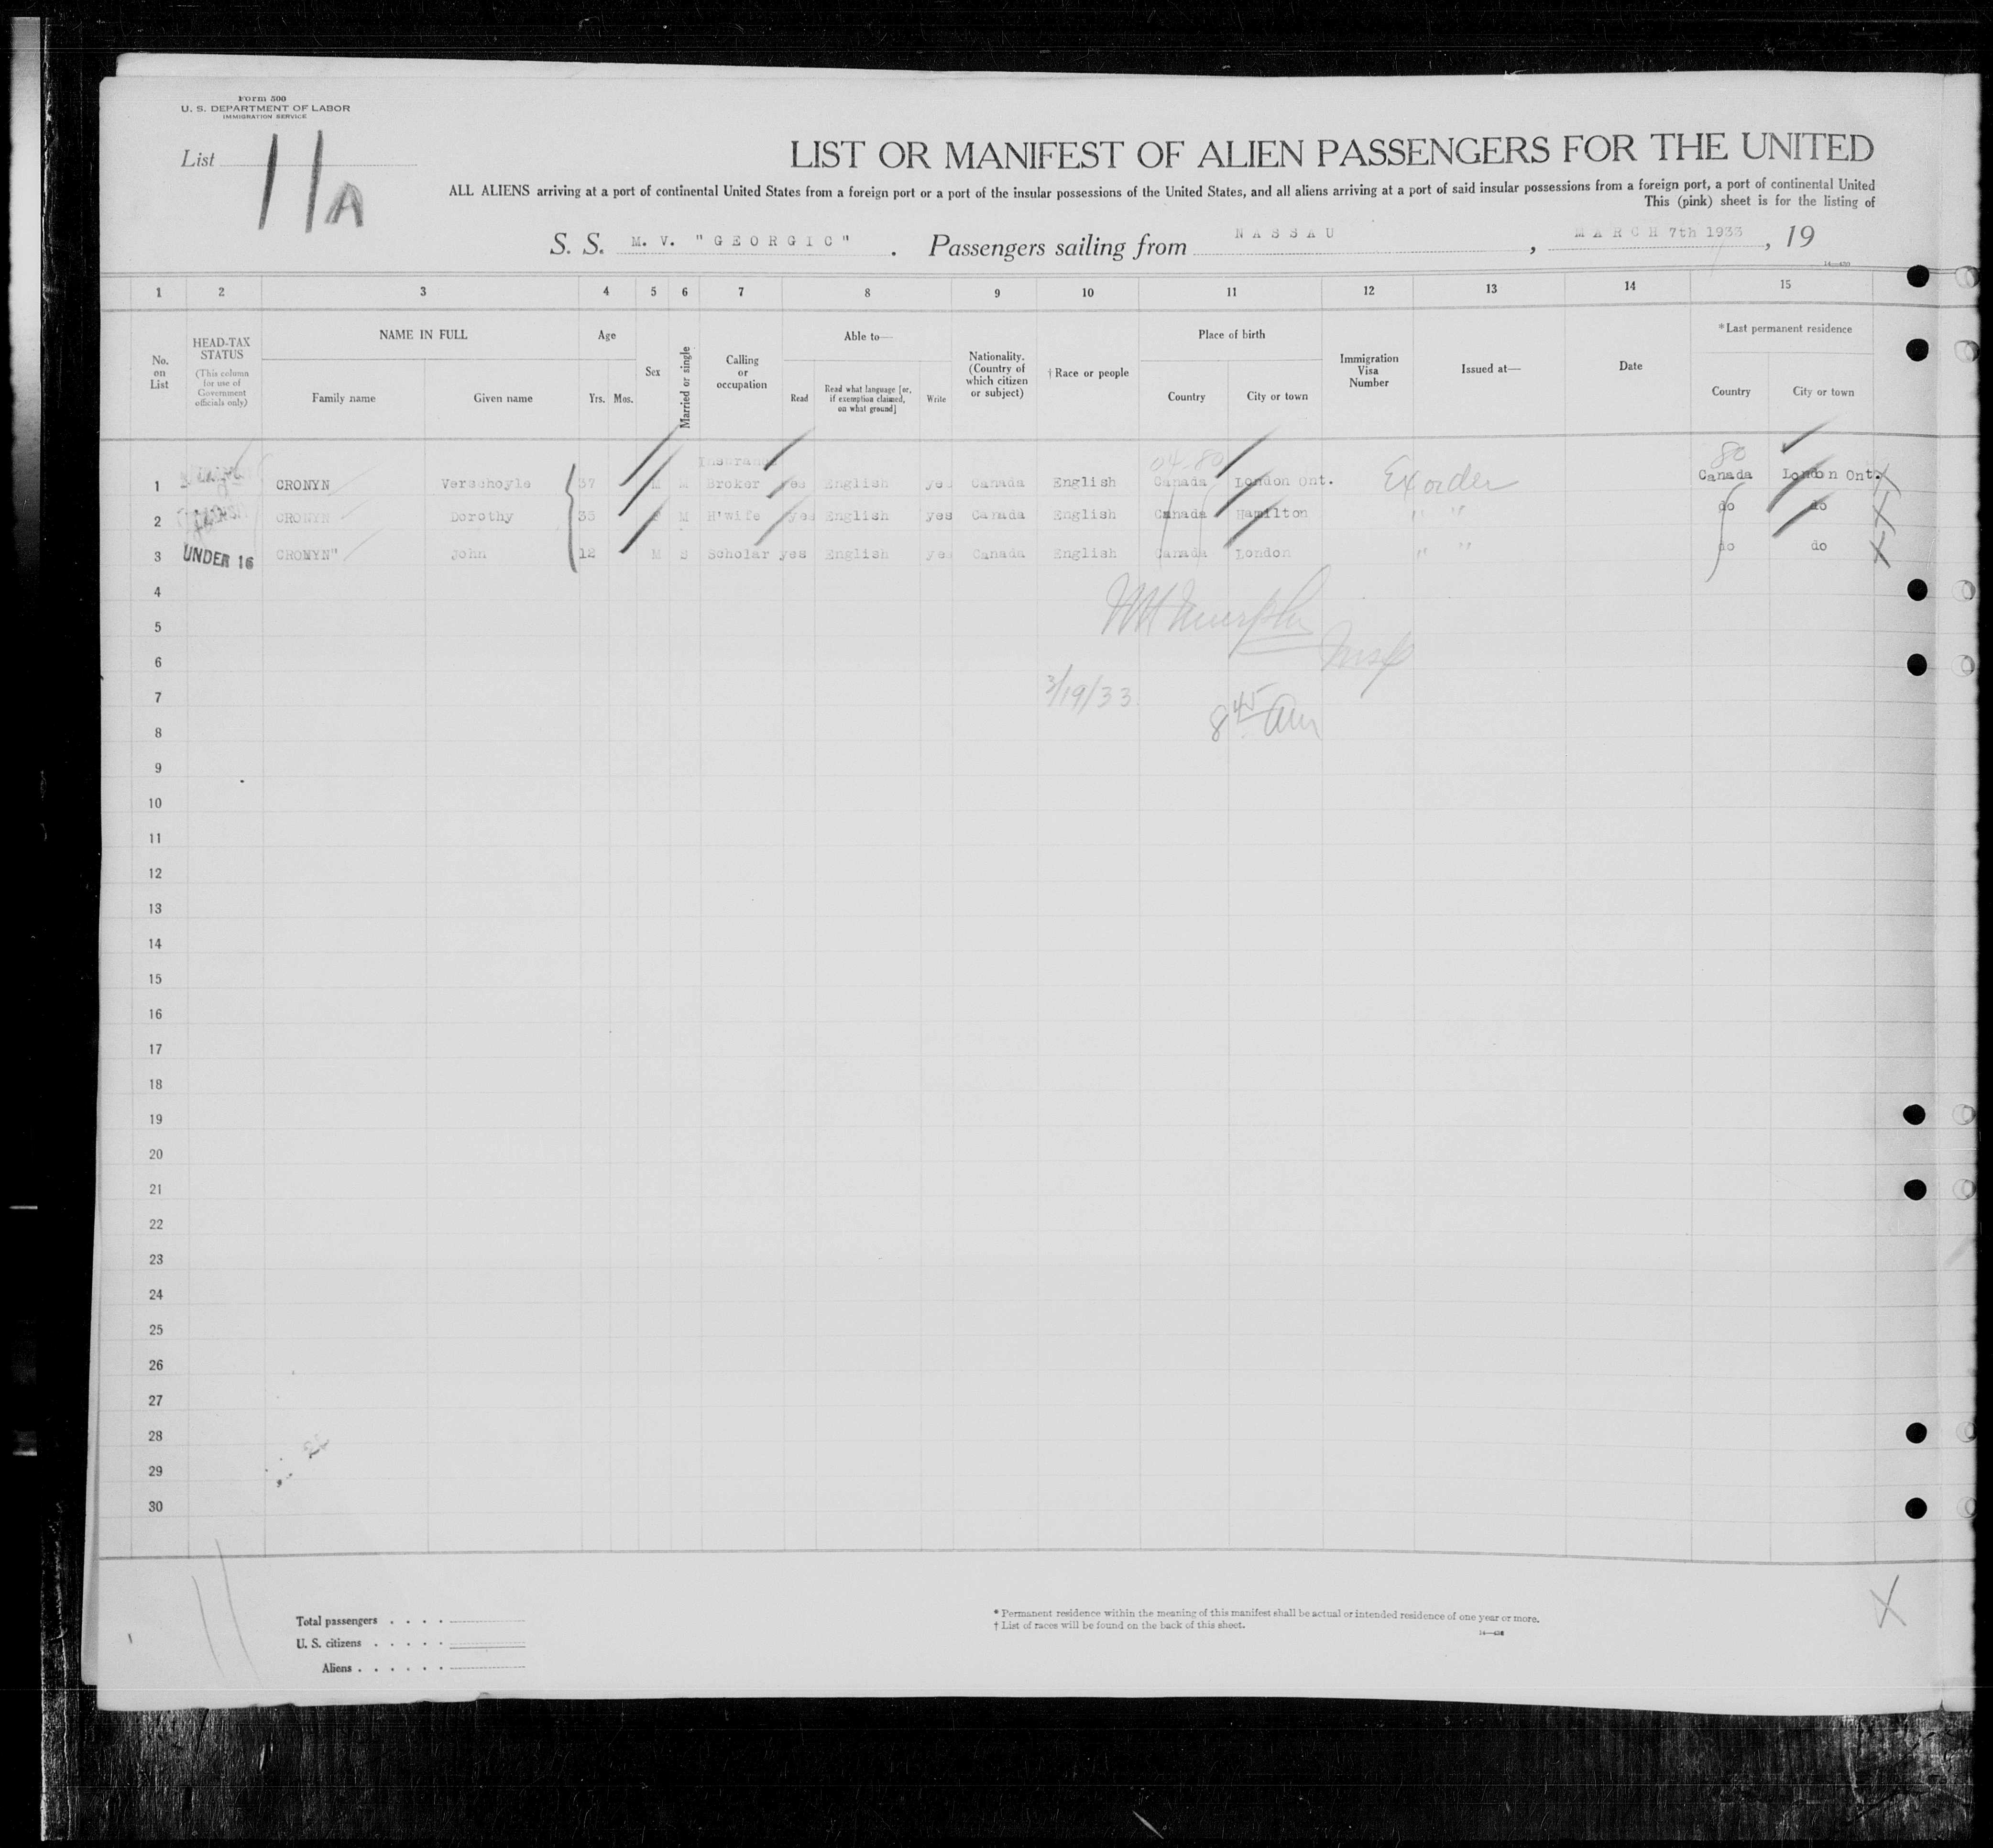 Form 500
U. S. DEPARTMENT OF LABOR
IMMIGRATION SERVICE
List 11A
LIST OR MANIFEST OF ALIEN PASSENGERS FOR THE UNITED
ALL ALIENS arriving at a port of continental United States from a foreign port or a port of the insular possessions of the United States, and all aliens arriving at a port of said insular possessions from a foreign port, a port of continental United
This (pink) sheet is for the listing of
S. S. M. V. "GEORGIC" . Passengers sailing from NASSAU , MARCH 7th 1933 , 19
1 2 3 4 5 6 7 8 9 10 11 12 13 14 15
No. on List
HEAD-TAX STATUS
(This column for use of Government officials only)
NAME IN FULL
Family name Given name
Age
Yrs. Mos.
Sex
Married or single
Calling or occupation
Able to—
Read
Read what language [or, if exemption claimed, on what ground]
Write
Nationality. (Country of which citizen or subject)
† Race or people
Place of birth
Country City or town
Immigration Visa Number
Issued at—
Date
* Last permanent residence
Country City or town
04-80 80
1 CRONYN Verschoyle 37 M M Insurance Broker yes English yes Canada English Canada London Ont. Ex order Canada London Ont.
2 CRONYN Dorothy 35 F M H'wife yes English yes Canada English Canada Hamilton " " do do
3 UNDER 16 CRONYN" John 12 M S Scholar yes English yes Canada English Canada London " " do do
4
5 W H Murphy
6 Insp
7 3/19/33
8 8 45 am
9
10
11
12
13
14
15
16
17
18
19
20
21
22
23
24
25
26
27
28
29
30
11
Total passengers . . . .
U. S. citizens . . . . .
Aliens . . . . . .
* Permanent residence within the meaning of this manifest shall be actual or intended residence of one year or more.
† List of races will be found on the back of this sheet.
X